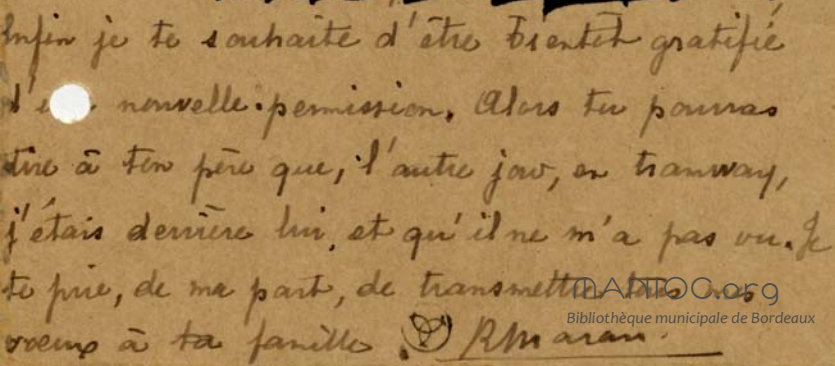 Enfin je te souhaite d'être bientôt gratifié
nouvelle permission. Alors tu pourras
dire à ton père que, l'autre jour, en tramway,
j'étais derrière lui, et qu'il ne m'a pas vu. Je
te prie, de ma part, de transmettre
MANIOC.org
Bibliothèque municipale de Bordeaux
vœux à ta famille. RMaran.